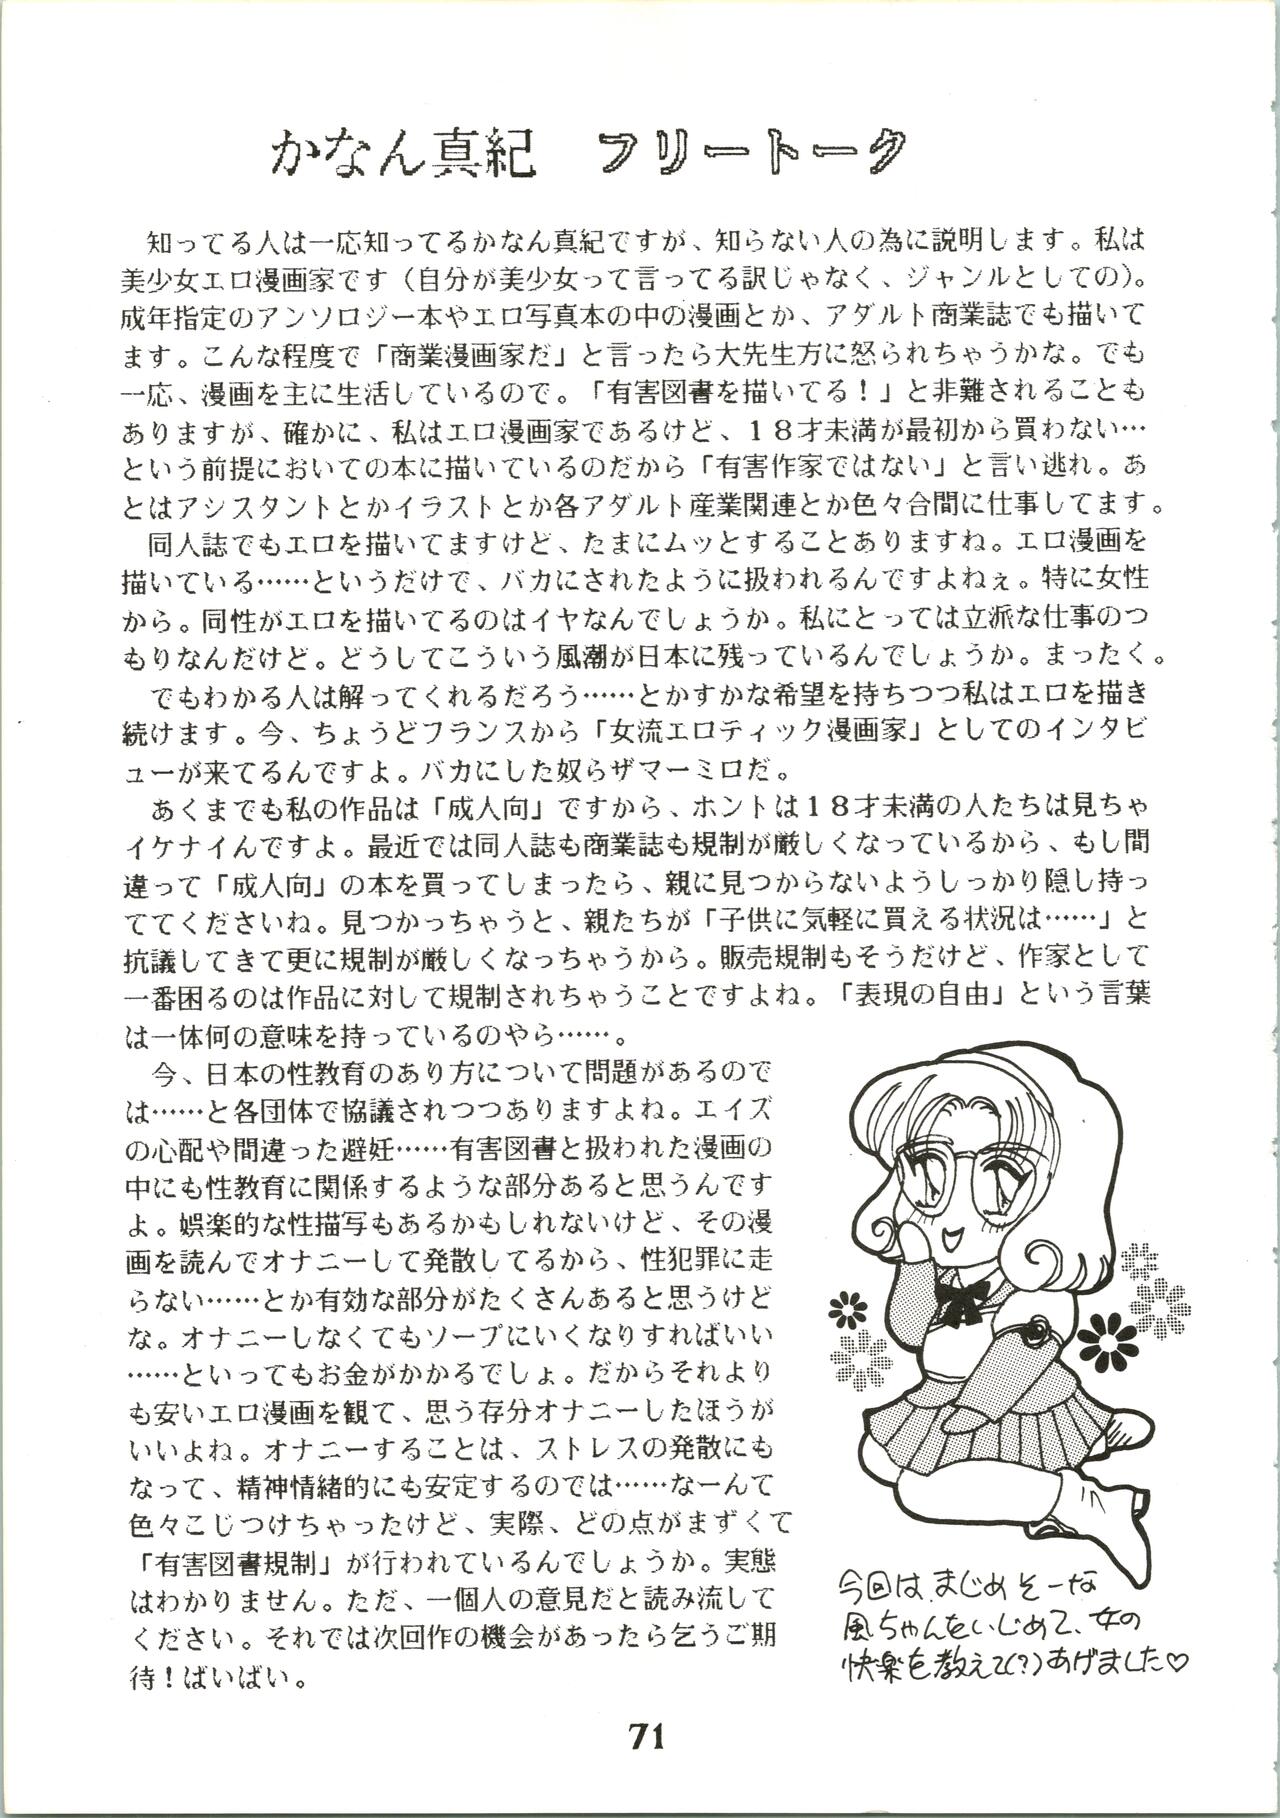 かなん真紀　フリートーク
知ってる人は一応知ってるかなん真紀ですが、知らない人の為に説明します。私は
美少女エロ漫画家です（自分が美少女って言ってる訳じゃなく、ジャンルとしての）。
成年指定のアンソロジー本やエロ写真本の中の漫画とか、アダルト商業誌でも描いて
ます。こんな程度で「商業漫画家だ」と言ったら大先生方に怒られちゃうかな。でも
一応、漫画を主に生活しているので。「有害図書を描いてる！」と非難されることも
ありますが、確かに、私はエロ漫画家であるけど、１８才未満が最初から買わない…
という前提においての本に描いているのだから「有害作家ではない」と言い逃れ。あ
とはアシスタントとかイラストとか各アダルト産業関連とか色々合間に仕事してます。
同人誌でもエロを描いてますけど、たまにムッとすることありますね。エロ漫画を
描いている……というだけで、バカにされたように扱われるんですよねぇ。特に女性
から。同性がエロを描いてるのはイヤなんでしょうか。私にとっては立派な仕事のつ
もりなんだけど。どうしてこういう風潮が日本に残っているんでしょうか。まったく。
でもわかる人は解ってくれるだろう……とかすかな希望を持ちつつ私はエロを描き
続けます。今、ちょうどフランスから「女流エロティック漫画家」としてのインタビ
ューが来てるんですよ。バカにした奴らザマーミロだ。
あくまでも私の作品は「成人向」ですから、ホントは１８才未満の人たちは見ちゃ
イケナイんですよ。最近では同人誌も商業誌も規制が厳しくなっているから、もし間
違って「成人向」の本を買ってしまったら、親に見つからないようしっかり隠し持っ
ててくださいね。見つかっちゃうと、親たちが「子供に気軽に買える状況は……」と
抗議してきて更に規制が厳しくなっちゃうから。販売規制もそうだけど、作家として
一番困るのは作品に対して規制されちゃうことですよね。「表現の自由」という言葉
は一体何の意味を持っているのやら……。
今、日本の性教育のあり方について問題があるので
は……と各団体で協議されつつありますよね。エイズ
の心配や間違った避妊……有害図書と扱われた漫画の
中にも性教育に関係するような部分あると思うんです
よ。娯楽的な性描写もあるかもしれないけど、その漫
画を読んでオナニーして発散してるから、性犯罪に走
らない……とか有効な部分がたくさんあると思うけど
な。オナニーしなくてもソープにいくなりすればいい
……といってもお金がかかるでしょ。だからそれより
も安いエロ漫画を観て、思う存分オナニーしたほうが
いいよね。オナニーすることは、ストレスの発散にも
なって、精神情緒的にも安定するのでは……なーんて
色々こじつけちゃったけど、実際、どの点がまずくて
「有害図書規制」が行われているんでしょうか。実態
はわかりません。ただ、一個人の意見だと読み流して
ください。それでは次回作の機会があったら乞うご期
待！ばいばい。
今回は、まじめそーな
風ちゃんをいじめて、女の
快楽を教えて(?)あげました♡
71